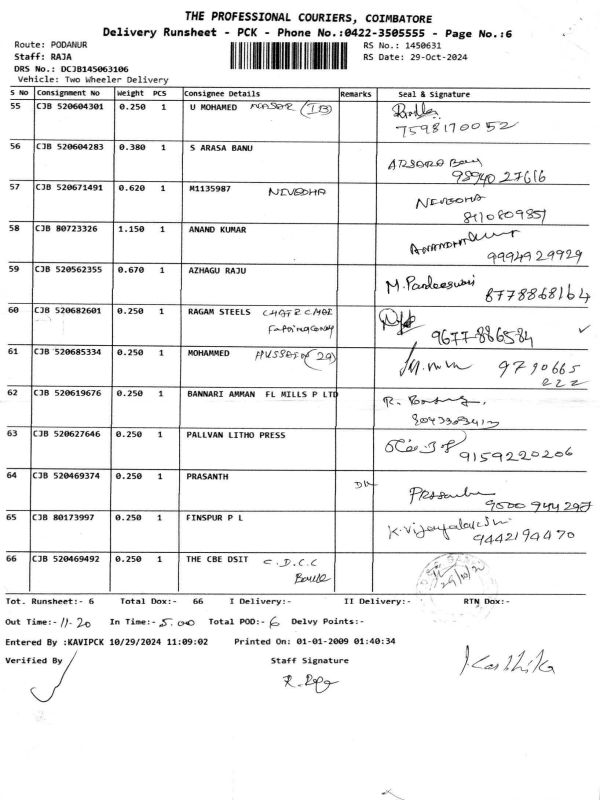 THE PROFESSIONAL COURIERS, COIMBATORE
Delivery Runsheet - PCK - Phone No.:0422-3505555 - Page No.:6
Route: PODANUR RS No.: 1450631
Staff: RAJA RS Date: 29-Oct-2024
DRS No.: DCJB145063106
Vehicle: Two Wheeler Delivery
S No Consignment No Weight PCS Consignee Details Remarks Seal & Signature
55 CJB 520604301 0.250 1 U MOHAMED NASAR (IB)
7598170052
56 CJB 520604283 0.380 1 S ARASA BANU
98940 27616
57 CJB 520671491 0.620 1 M1135987 NIVEDHA NIVEDHA
8110809851
58 CJB 80723326 1.150 1 ANAND KUMAR
9994929929
59 CJB 520562355 0.670 1 AZHAGU RAJU M. Pandeeswari
8778868164
60 CJB 520682601 0.250 1 RAGAM STEELS
9677886584
61 CJB 520685334 0.250 1 MOHAMMED HUSSAIN (29)
9790665
222
62 CJB 520619676 0.250 1 BANNARI AMMAN FL MILLS P LTD
63 CJB 520627646 0.250 1 PALLVAN LITHO PRESS
9159220206
64 CJB 520469374 0.250 1 PRASANTH Prasanth
9000944297
65 CJB 80173997 0.250 1 FINSPUR P L K. Vijayalakshmi
9442194470
66 CJB 520469492 0.250 1 THE CBE DSIT C.D.C.C
Tot. Runsheet:- 6 Total Dox:- 66 I Delivery:- II Delivery:- RTN Dox:-
Out Time:- 11.20 In Time:- 5.00 Total POD:- 6 Delvy Points:-
Entered By :KAVIPCK 10/29/2024 11:09:02 Printed On: 01-01-2009 01:40:34
Verified By Staff Signature
R. Raja